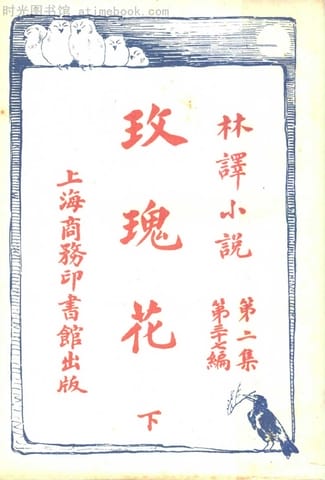 时光图书馆 atimebook.com
林譯小説
第二集
第三十七編
玫瑰花
下
上海商務印書館出版